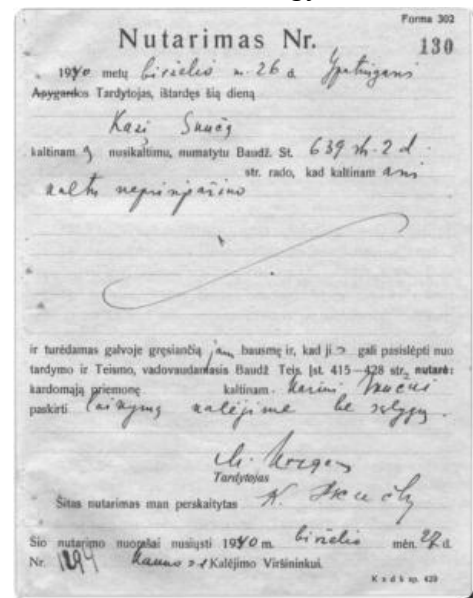 Forma 302
Nutarimas Nr. 130
1940 metų birželio m. 26 d. Ypatingasis
Apygardos Tardytojas, ištardęs šią dieną
Kazį Skučą
kaltinamą nusikaltimu, numatytu Baudž. St. 639 str. 2 d.
str. rado, kad kaltinam
kaltu neprisipažino
ir turėdamas galvoje gręsiančią jam bausmę ir, kad jis gali pasislėpti nuo
tardymo ir Teismo, vadovaudamasis Baudž. Teis. Įst. 415—428 str., nutarė:
kardomąją priemonę kaltinam. Kaziui Skučui
paskirti laikymą kalėjime be sąlygų.
Tardytojas
Šitas nutarimas man perskaitytas K. Skučas
Šio nutarimo nuorašai nusiųsti 1940 m. birželio mėn. 27 d.
Nr. 1294 Kauno Kalėjimo Viršininkui.